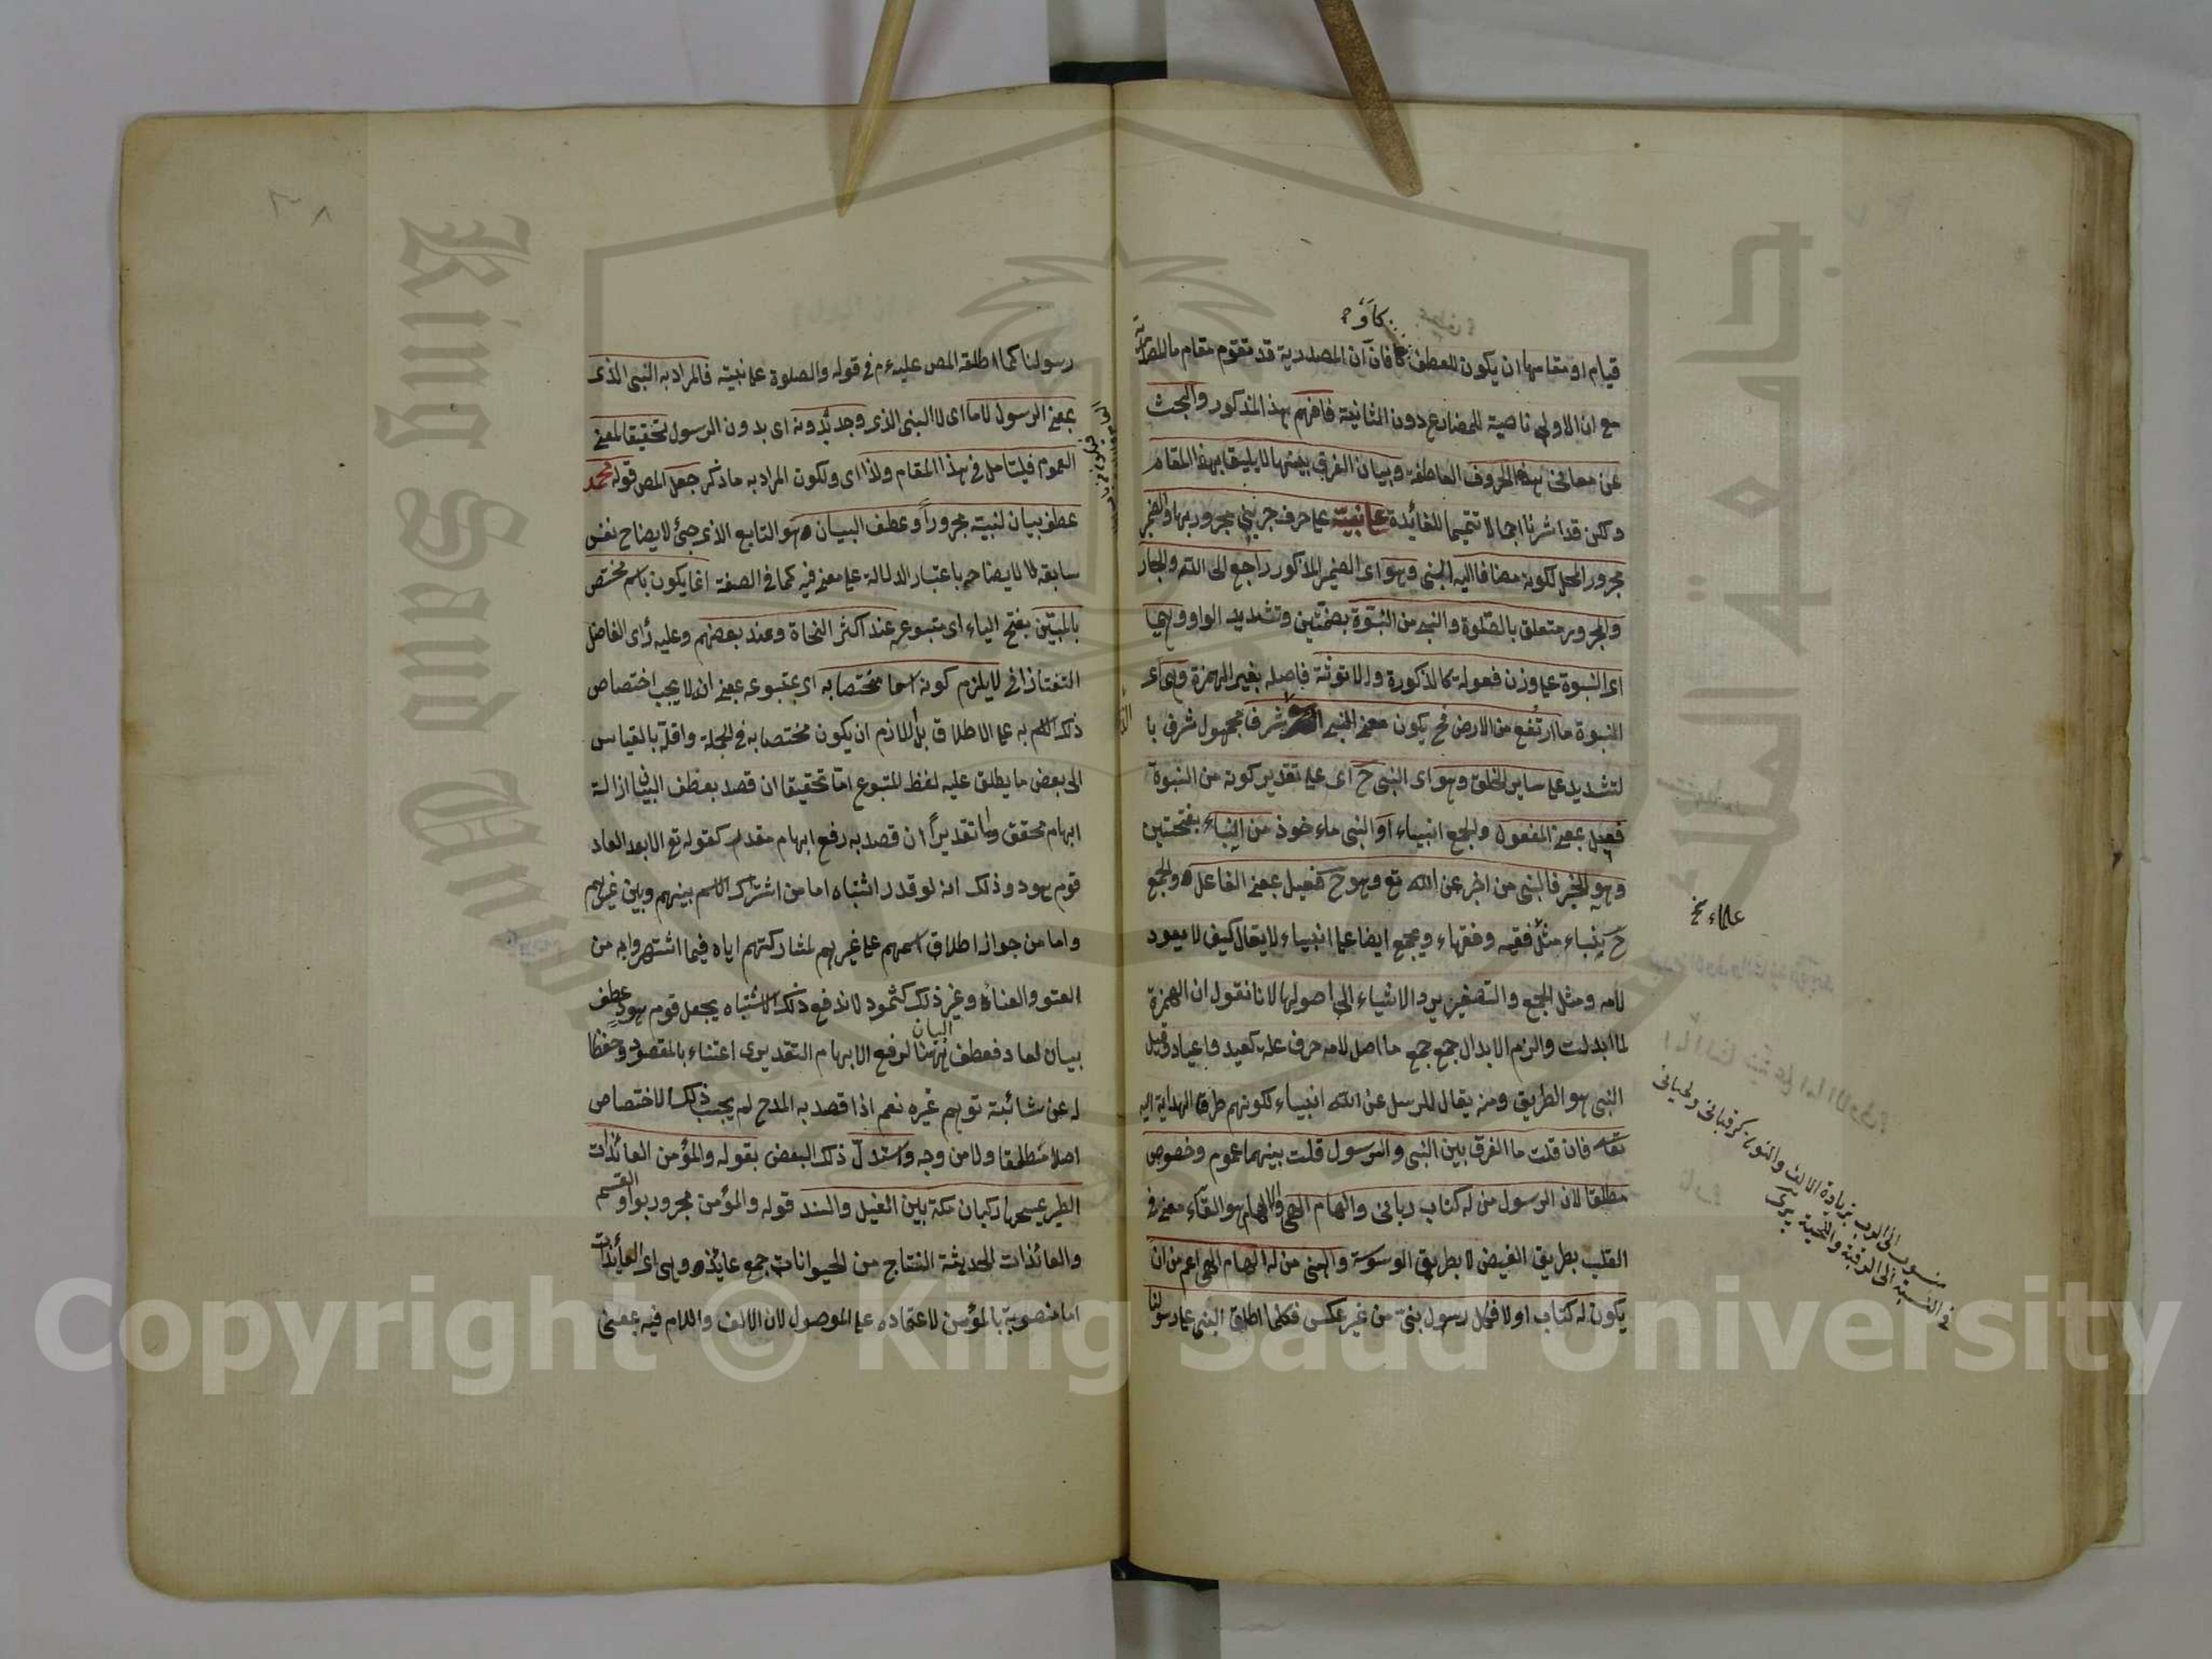 كأو
قيام او مقامها ان يكون للعطف كأ فان ان المصدرية قد تقوم مقام ما المصدرية
مع ان الاولى ناصبة للمضارع دون الثانية فافهم بهذا المذكور والبحث
عن معانى هذه الحروف العاطفة وبيان الفرق بينها لا يليق بهذا المقام
ولكن قد اشرنا اجمالا تتميما للفائدة على نبيه على حرف جر نبى مجرور بها والضمير
مجرور المحل لكونه مضافا اليه النبى وهو اى الضمير المذكور راجع الى الله والجار
والمجرور متعلق بالصلوة والنبى من النبوة بضمتين وتشديد الواو وهى
اى النبوة على وزن فعولة كالذكورة والانوثة فاصله بغير الهمزة وهى اى
النبوة ما ارتفع من الارض فح يكون معنى النبى شرف مجهول شرف با
لتشديد على ساير الخلق وهو اى النبى ح اى على تقدير كونه من النبوة
فعيل بمعنى المفعول والجمع انبياء او النبى ماءخوذ من النباء بفتحتين
وهو الخبر فالنبى من اخبر عن الله تع وهو ح فعيل بمعنى الفاعل والجمع
ح نباء مثل فقيه وفقهاء ويجمع ايضا على انبياء لا يقال كيف لا يعود
لامه ومثل الجمع والتصغير يرد الاشياء الى اصولها لانا نقول ان الهمزة
لما ابدلت والزم الابدال جمع جمع ما اصل لامه حرف علة كعيد واعياد وقيل
النبى هو الطريق ومنه يقال للرسل عن الله انبياء لكونهم طرق الهداية اليه
تعا فان قلت ما الفرق بين النبى والرسول قلت بينهما عموم وخصوص
مطلقا لان الرسول من له كتاب ربانى والهام الهى والالهام هو القاء معنى فى
القلب بطريق الفيض لا بطريق الوسوسة والنبى من له الهام الهى اعم من ان
يكون له كتاب اولا فكل رسول نبى من غير عكس فكلما اطلق النبى على رسولنا
علماء نخ
منسوب الى الرب بزيادة الالف والنون كرقبانى ولحيانى
فى النسبة الى الرقبة واللحية
رسولنا كما اطلقه المص عليه م فى قوله والصلوة على نبيه فالمراد به النبى الذى
بمعنى الرسول لا ما اى لا النبى الذى وجد بدونه اى بدون الرسول تحقيقا لمعنى
العموم فليتأمل فى هذا المقام ولذا اى ولكون المراد به ما ذكر جعل المص قوله محمد
عطف بيان لنبيه مجرورا وعطف البيان هو التابع الذى جئ لايضاح نفس
سابقه لا لايضاحه باعتبار الدلالة على معنى فيه كما فى الصفة انما يكون باسم مختص
بالمبين بفتح الياء اى متبوعه عند اكثر النحاة وعند بعضهم وعليه رأى الفاضل
التفتازانى لا يلزم كونه اسما مختصا به اى بمتبوعه بمعنى انه لا يجب اختصاص
ذلك الاسم به على الاطلاق بل اللازم ان يكون مختصا به فى الجملة واقله بالقياس
الى بعض ما يطلق عليه لفظ المتبوع اما تحقيقا ان قصد بعطف البيان ازالة
ابهام محقق واما تقديرا ان قصد به رفع ابهام مقدر كقوله تع الا بعدا لعاد
قوم هود وذلك انه لو قدر اشتباه اما من اشتراك الاسم بينهم وبين غيرهم
واما من جواز اطلاق اسمهم على غيرهم لمشاركتهم اياه فيما اشتهروا به من
العتو والعناد وغير ذلك كثمود لاندفع ذلك الاشتباه بجعل قوم هود عطف
بيان لعاد فعطف البيان ههنا لرفع الابهام التقديرى اعتناء بالمقصود وحفظا
له عن شائبة توهم غيره نعم اذا قصد به المدح لم يجب ذلك الاختصاص
اصلا مطلقا ولا من وجه واستدل ذلك البعض بقوله والمؤمن العائذات
الطير يمسحها ركبان مكة بين الغيل والسند قوله والمؤمن مجرور بواو القسم
والعائذات الحديثة النتاج من الحيوانات جمع عايذه وهى اى العائذات
اما منصوبة بالمؤمن لاعتماده على الموصول لان الالف واللام فيه بمعنى
King Saud University
جامعة الملك سعود
Copyright © King Saud University